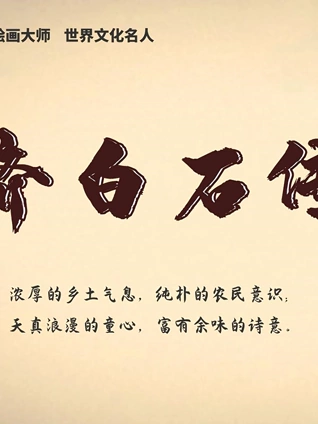 绘画大师 世界文化名人
齐白石传
浓厚的乡土气息，纯朴的农民意识；
天真浪漫的童心，富有余味的诗意。